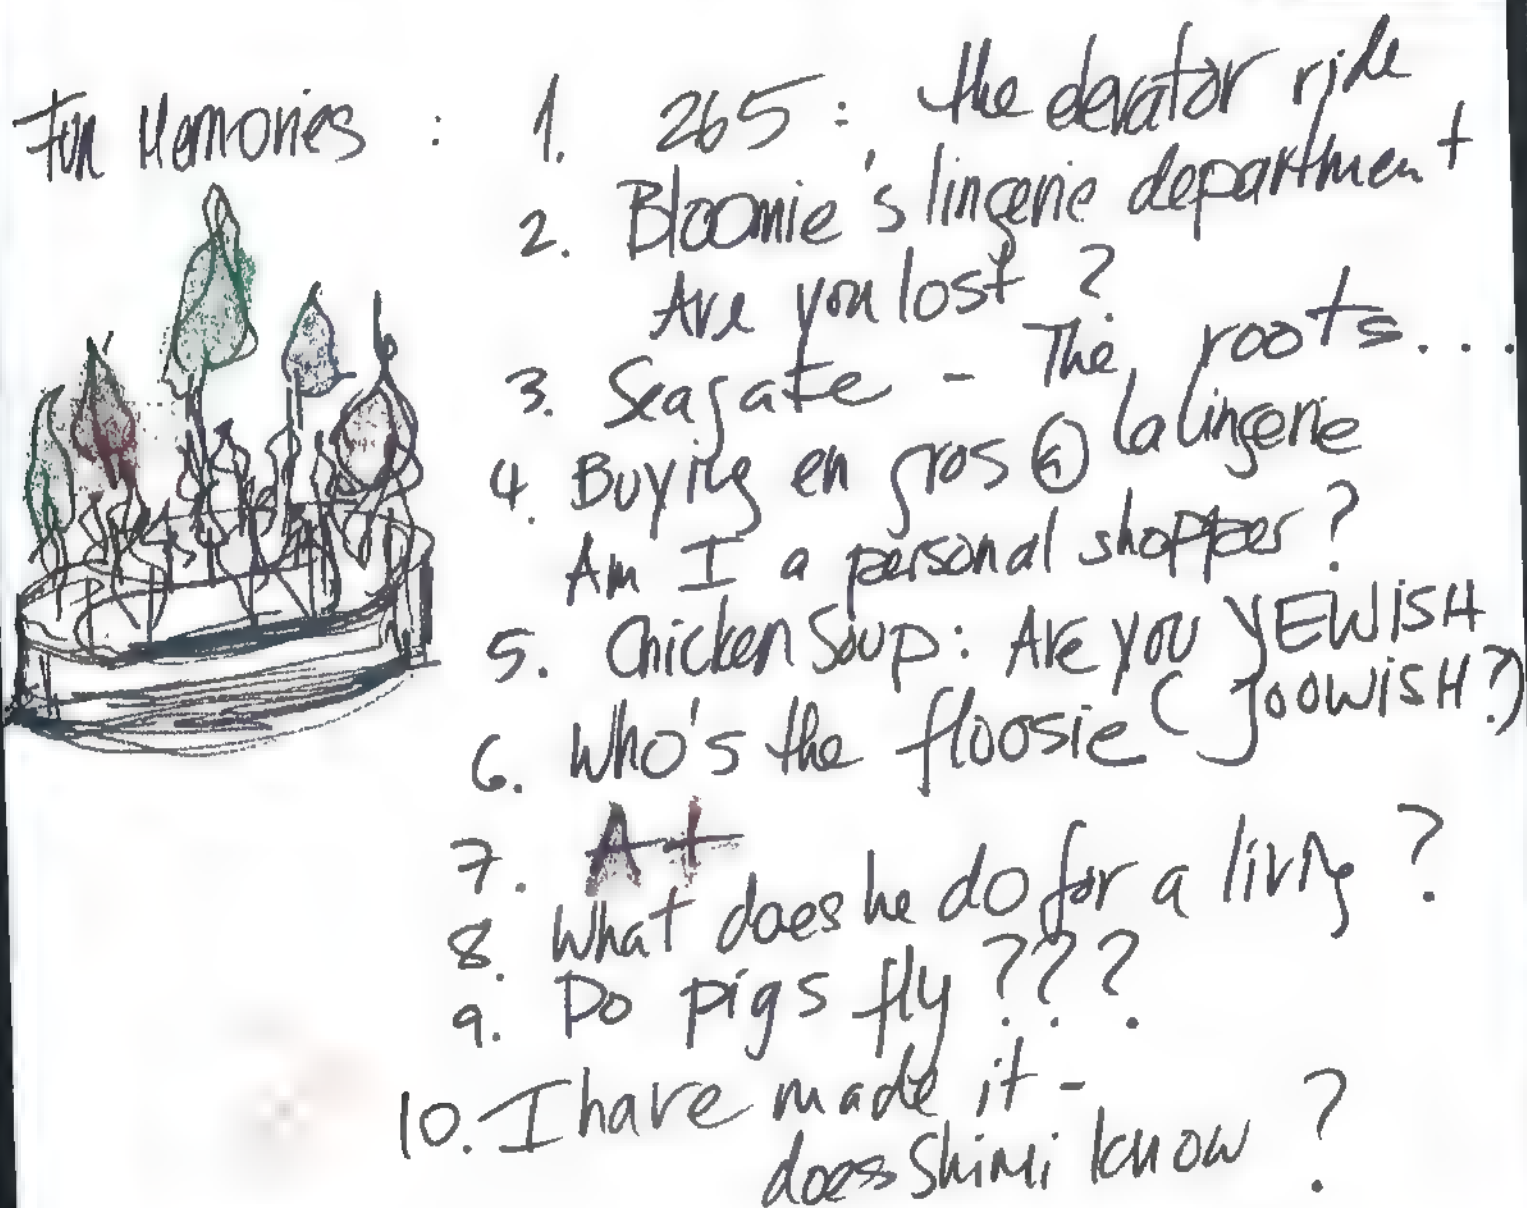 Fun Memories : 1. 265: the elevator ride
2. Bloomie's lingerie department
Are you lost ?
3. Seagate - The roots...
4. Buying en gros @ La Lingerie
Am I a personal shopper ?
5. Chicken Soup: Are you YEWISH
( JOOWISH?)
6. Who's the floosie
7. A+
8. What does he do for a living ?
9. Do pigs fly ???
10. I have made it -
does Shimi know ?